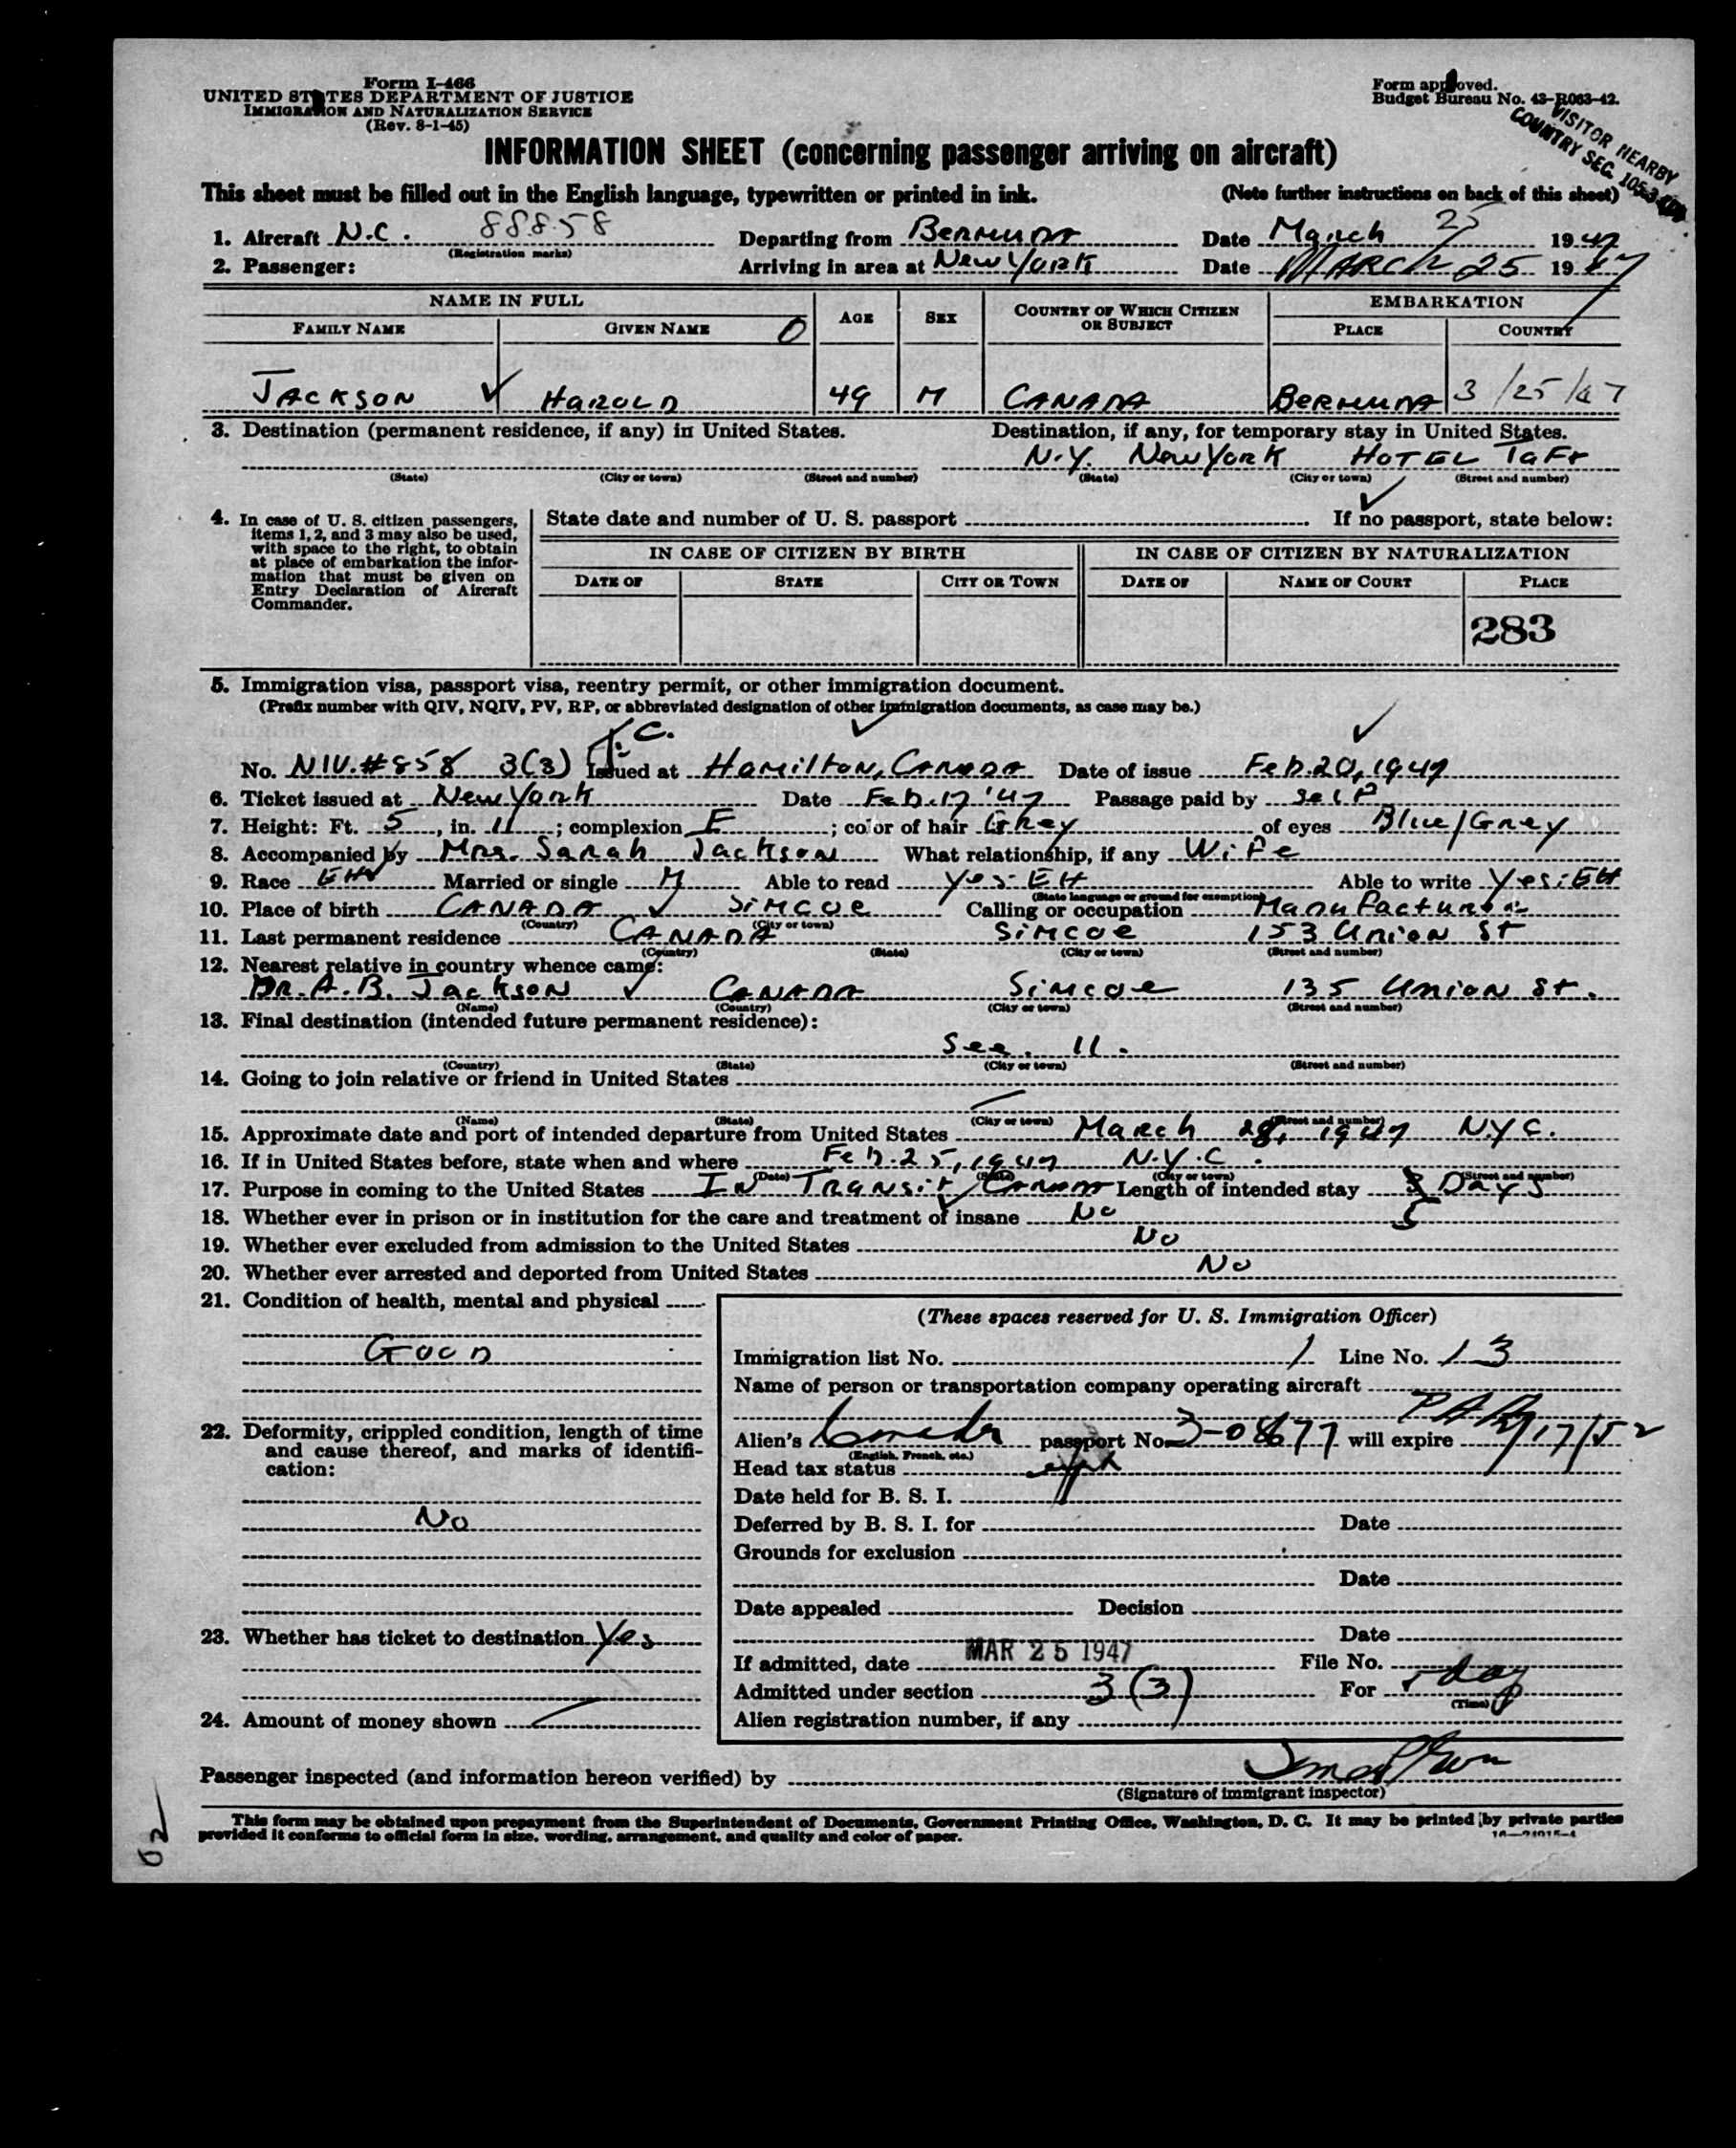 Form I-466
UNITED STATES DEPARTMENT OF JUSTICE
IMMIGRATION AND NATURALIZATION SERVICE
(Rev. 8-1-45)
Form approved.
Budget Bureau No. 43-R063-42.
VISITOR NEARBY
COUNTRY SEC.
INFORMATION SHEET (concerning passenger arriving on aircraft)
This sheet must be filled out in the English language, typewritten or printed in ink. (Note further instructions on back of this sheet)
1. Aircraft N.C. 88858 Departing from BERMUDA Date March 25 1947
(Registration marks)
2. Passenger: Arriving in area at New York Date MARCH 25 1947
NAME IN FULL AGE SEX COUNTRY OF WHICH CITIZEN OR SUBJECT EMBARKATION
FAMILY NAME GIVEN NAME PLACE COUNTRY
JACKSON HAROLD 49 M CANADA BERMUDA 3/25/47
3. Destination (permanent residence, if any) in United States. Destination, if any, for temporary stay in United States.
N.Y. New York HOTEL TaFt
(State) (City or town) (Street and number) (State) (City or town) (Street and number)
4. In case of U. S. citizen passengers, items 1, 2, and 3 may also be used, with space to the right, to obtain at place of embarkation the information that must be given on Entry Declaration of Aircraft Commander.
State date and number of U. S. passport If no passport, state below:
IN CASE OF CITIZEN BY BIRTH IN CASE OF CITIZEN BY NATURALIZATION
DATE OF STATE CITY OR TOWN DATE OF NAME OF COURT PLACE
283
5. Immigration visa, passport visa, reentry permit, or other immigration document.
(Prefix number with QIV, NQIV, PV, RP, or abbreviated designation of other immigration documents, as case may be.)
No. NIV.#858 3(3) Issued at Hamilton, CANADA Date of issue Feb.20,1947
6. Ticket issued at New York Date Feb.17 '47 Passage paid by Self
7. Height: Ft. 5, in. 11; complexion F; color of hair Grey of eyes Blue/Grey
8. Accompanied by Mrs. Sarah Jackson What relationship, if any Wife
9. Race EH Married or single M Able to read Yes EH Able to write Yes:EH
(State language or ground for exemption)
10. Place of birth CANADA Simcoe Calling or occupation Manufacturer
(Country) (City or town)
11. Last permanent residence CANADA Simcoe 153 Union St
(Country) (State) (City or town) (Street and number)
12. Nearest relative in country whence came:
Dr. A. B. Jackson CANADA Simcoe 135 Union St.
(Name) (Country) (City or town) (Street and number)
13. Final destination (intended future permanent residence):
See. 11.
(Country) (State) (City or town) (Street and number)
14. Going to join relative or friend in United States
(Name) (State) (City or town) (Street and number)
15. Approximate date and port of intended departure from United States March 28, 1947 N.Y.C.
16. If in United States before, state when and where Feb.25,1947 N.Y.C.
(Date) (State) (City or town) (Street and number)
17. Purpose in coming to the United States In Transit Canada Length of intended stay 5 Days
18. Whether ever in prison or in institution for the care and treatment of insane No
19. Whether ever excluded from admission to the United States No
20. Whether ever arrested and deported from United States No
21. Condition of health, mental and physical
Good
22. Deformity, crippled condition, length of time and cause thereof, and marks of identification:
No
23. Whether has ticket to destination Yes
24. Amount of money shown
(These spaces reserved for U. S. Immigration Officer)
Immigration list No. 1 Line No. 13
Name of person or transportation company operating aircraft
PAA
Alien's Canada passport No. 3-08677 will expire /17/52
(English, French, etc.)
Head tax status
Date held for B. S. I.
Deferred by B. S. I. for Date
Grounds for exclusion
Date
Date appealed Decision
Date
If admitted, date MAR 25 1947 File No.
Admitted under section 3(3) For day
(Time)
Alien registration number, if any
Passenger inspected (and information hereon verified) by
(Signature of immigrant inspector)
This form may be obtained upon prepayment from the Superintendent of Documents, Government Printing Office, Washington, D. C. It may be printed by private parties
provided it conforms to official form in size, wording, arrangement, and quality and color of paper.